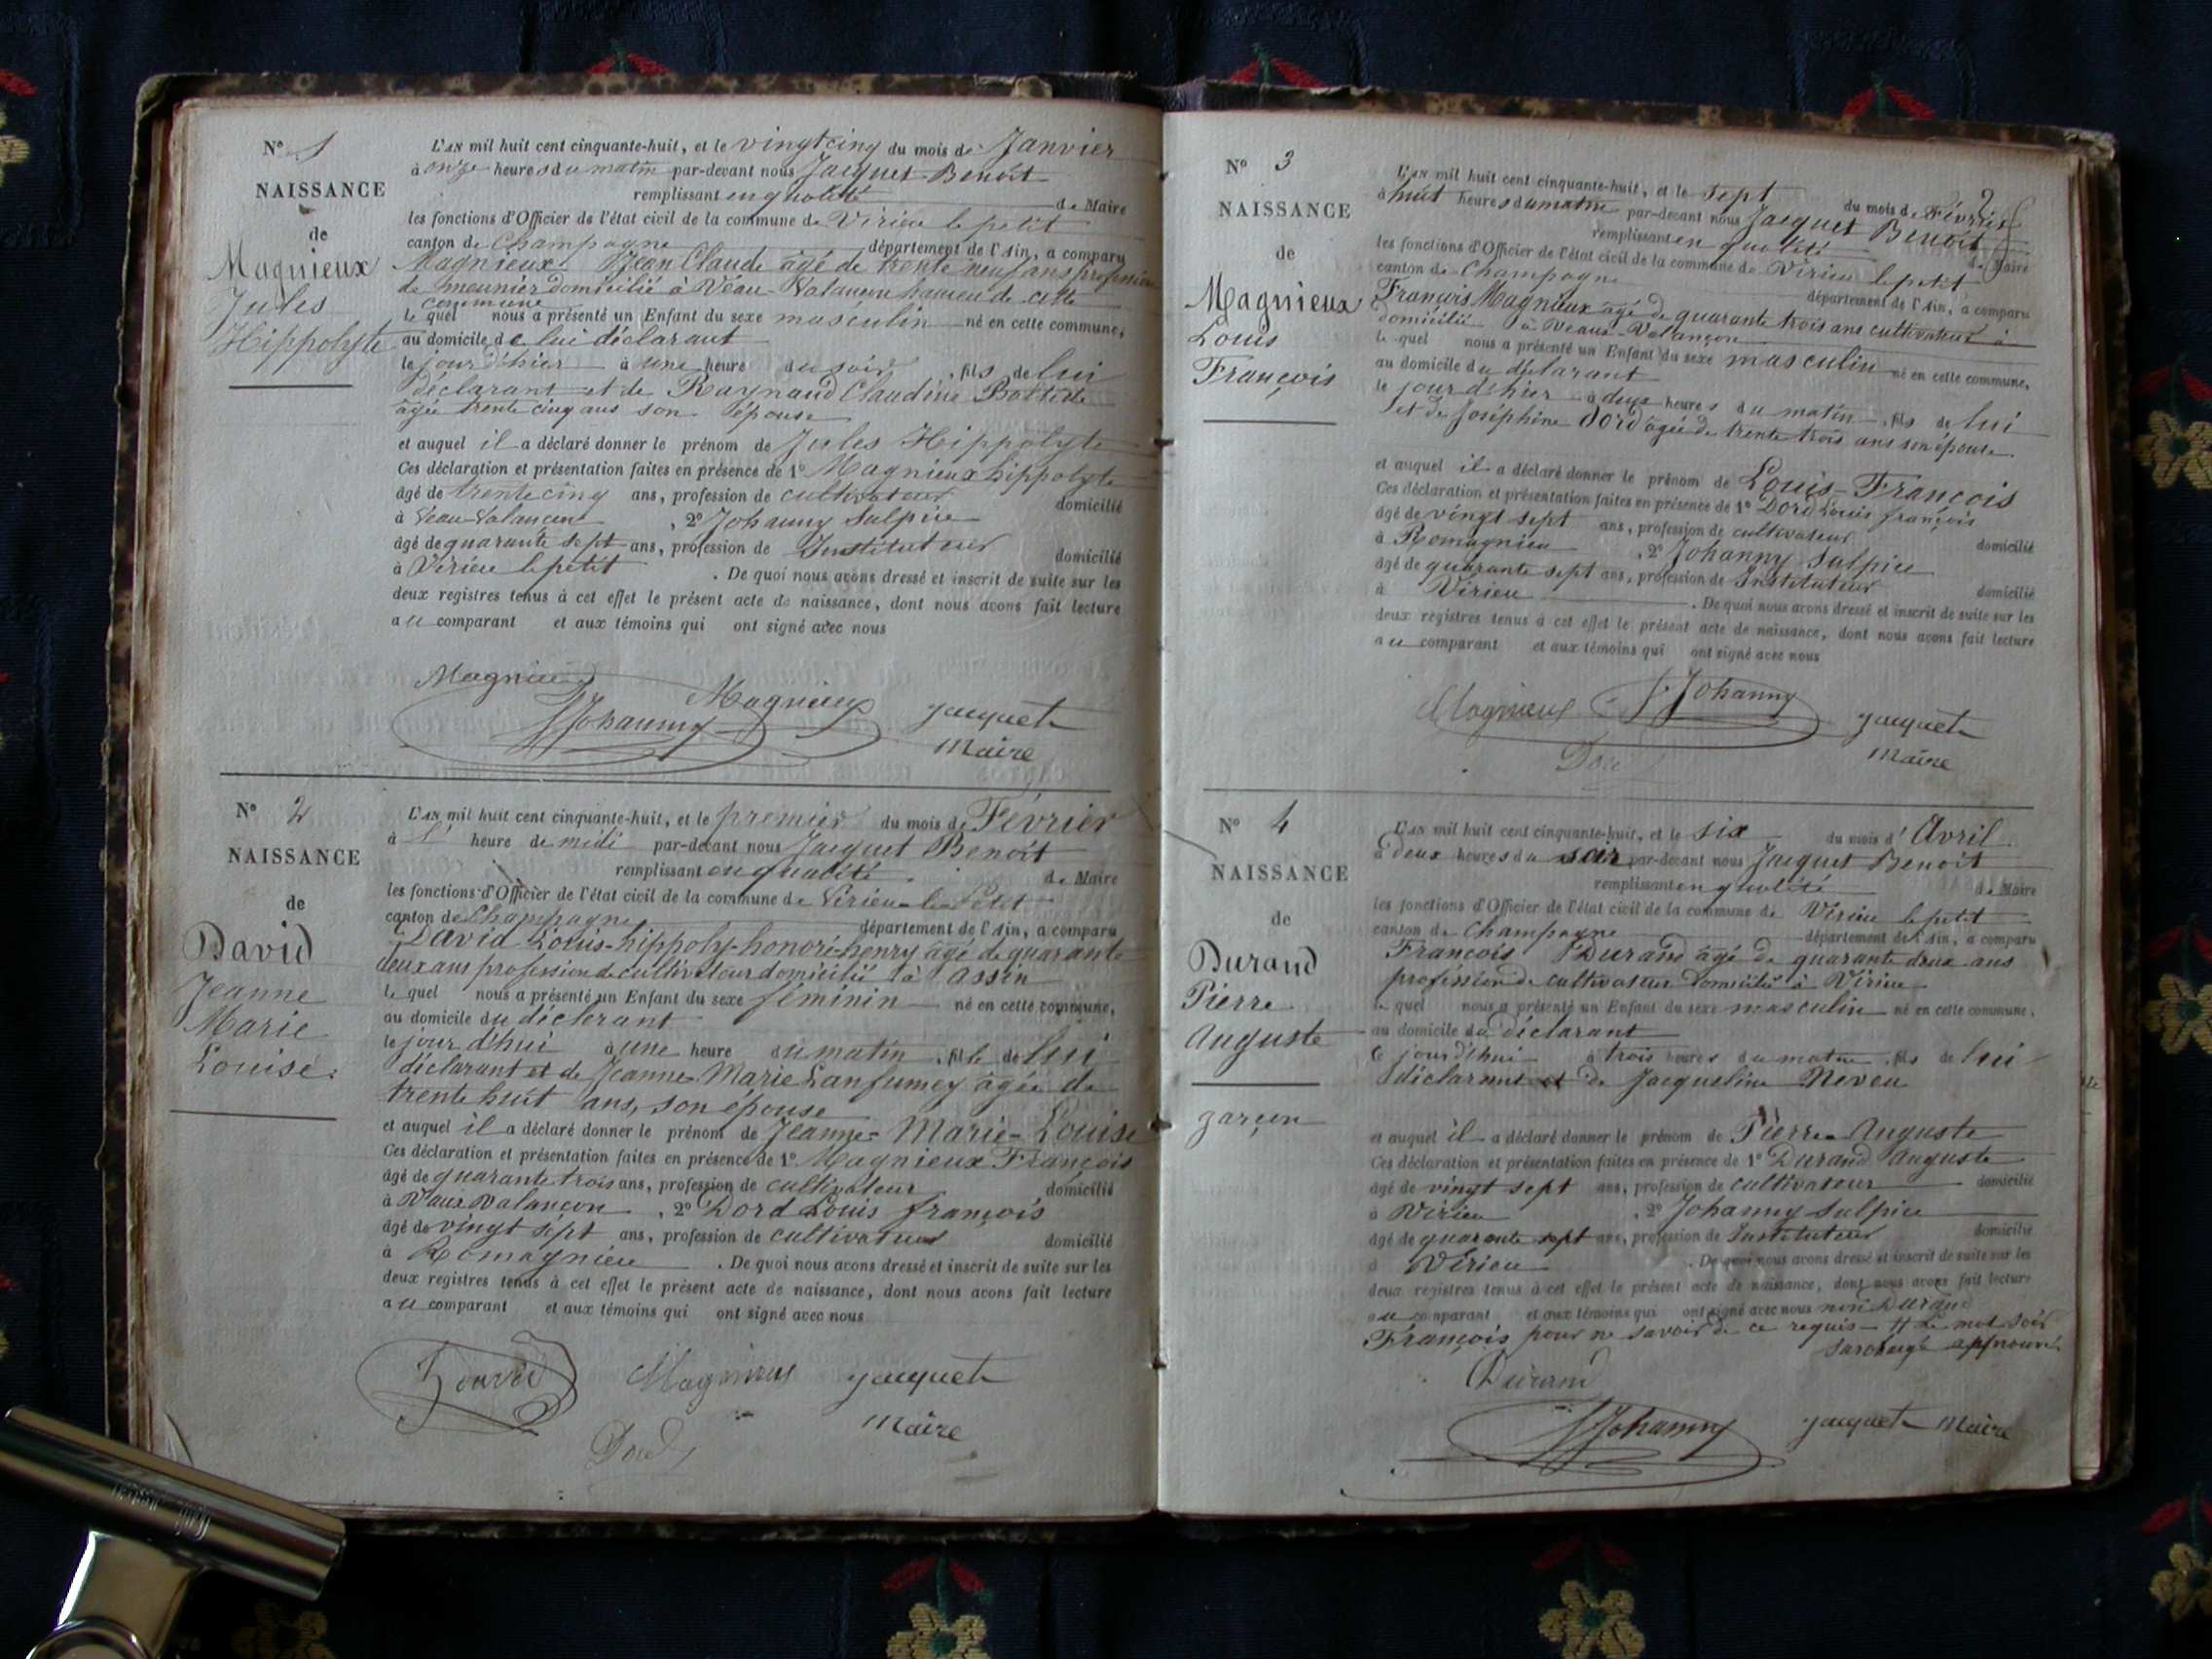 N° 1
NAISSANCE
de
Magnieux
Jules
Hippolyte
L'AN mil huit cent cinquante-huit, et le vingt cinq du mois de Janvier
à onze heures du matin par-devant nous Jacquet Benoit
remplissant en qualité de Maire
les fonctions d'Officier de l'état civil de la commune de Virieu le petit
canton de Champagne département de l'Ain, a comparu
Magnieux Jean Claude âgé de trente neuf ans profession
de meunier domicilié à Veau-Valancon hameau de cette
commune
le quel nous a présenté un Enfant du sexe masculin né en cette commune,
au domicile de lui déclarant
le jour d'hier à une heure du soir, fils de lui
déclarant et de Raynaud Claudine
âgée trente cinq ans son épouse
et auquel il a déclaré donner le prénom de Jules Hippolyte
Ces déclaration et présentation faites en présence de 1° Magnieux hippolyte
âgé de trente cinq ans, profession de cultivateur domicilié
à Veau-Valancon, 2° Johanny Sulpice
âgé de quarante sept ans, profession de Instituteur domicilié
à Virieu le petit. De quoi nous avons dressé et inscrit de suite sur les
deux registres tenus à cet effet le présent acte de naissance, dont nous avons fait lecture
au comparant et aux témoins qui ont signé avec nous
Magnieux Magnieux Jacquet
Johanny Maire
N° 2
NAISSANCE
de
David
Jeanne
Marie
Louise.
L'AN mil huit cent cinquante-huit, et le premier du mois de Février
à l' heure de midi par-devant nous Jacquet Benoit
remplissant en qualité de Maire
les fonctions d'Officier de l'état civil de la commune de Virieu-le-Petit
canton de Champagne département de l'Ain, a comparu
David Louis-hippoly-honoré-henry âgé de quarante
deux ans profession de cultivateur domicilié à assin
le quel nous a présenté un Enfant du sexe féminin né en cette commune,
au domicile du déclarant
le jour d'hui à une heure du matin, fille de lui
déclarant et de Jeanne-Marie Lanfumey âgée de
trente huit ans, son épouse
et auquel il a déclaré donner le prénom de Jeanne-Marie-Louise
Ces déclaration et présentation faites en présence de 1° Magnieux François
âgé de quarante trois ans, profession de cultivateur domicilié
à Vaux Valancon, 2° Dord Louis françois
âgé de vingt sept ans, profession de cultivateur domicilié
à Romagnieu. De quoi nous avons dressé et inscrit de suite sur les
deux registres tenus à cet effet le présent acte de naissance, dont nous avons fait lecture
au comparant et aux témoins qui ont signé avec nous
David Magnieux Jacquet
Dord Maire
N° 3
NAISSANCE
de
Magnieux
Louis
François
2
L'AN mil huit cent cinquante-huit, et le sept du mois de Février
à huit heures du matin par-devant nous Jacquet Benoit
remplissant en qualité de Maire
les fonctions d'Officier de l'état civil de la commune de Virieu le petit
canton de Champagne département de l'Ain, a comparu
François Magnieux âgé de quarante trois ans cultivateur à
domicilié à Veaux-Valançon
le quel nous a présenté un Enfant du sexe masculin né en cette commune,
au domicile du déclarant
le jour d'hier à deux heures du matin, fils de lui
et de Joséphine Dord âgée de trente trois ans son épouse.
et auquel il a déclaré donner le prénom de Louis-François
Ces déclaration et présentation faites en présence de 1° Dord Louis françois
âgé de vingt sept ans, profession de cultivateur domicilié
à Romagnieu, 2° Johanny Sulpice
âgé de quarante sept ans, profession de Instituteur domicilié
à Virieu. De quoi nous avons dressé et inscrit de suite sur les
deux registres tenus à cet effet le présent acte de naissance, dont nous avons fait lecture
au comparant et aux témoins qui ont signé avec nous
Magnieux Johanny Jacquet
Dord Maire
N° 4
NAISSANCE
de
Durand
Pierre
Auguste
garçon
L'AN mil huit cent cinquante-huit, et le six du mois d'Avril.
à deux heures du soir par-devant nous Jacquet Benoit
remplissant en qualité de Maire
les fonctions d'Officier de l'état civil de la commune de Virieu le petit
canton de Champagne département de l'Ain, a comparu
François Durand âgé de quarante deux ans
profession de cultivateur domicilié à Virieu
le quel nous a présenté un Enfant du sexe masculin né en cette commune,
au domicile du déclarant
ce jourd'hui à trois heures du matin, fils de lui
déclarant et de Jacqueline Neveu
et auquel il a déclaré donner le prénom de Pierre Auguste
Ces déclaration et présentation faites en présence de 1° Durand Auguste
âgé de vingt sept ans, profession de cultivateur domicilié
à Virieu, 2° Johanny Sulpice
âgé de quarante sept ans, profession de Instituteur domicilié
à Virieu. De quoi nous avons dressé et inscrit de suite sur les
deux registres tenus à cet effet le présent acte de naissance, dont nous avons fait lecture
au comparant et aux témoins qui ont signé avec nous non Durand
François pour ne savoir de ce requis Le mot soir
surchargé approuvé
Durand
Johanny Jacquet Maire